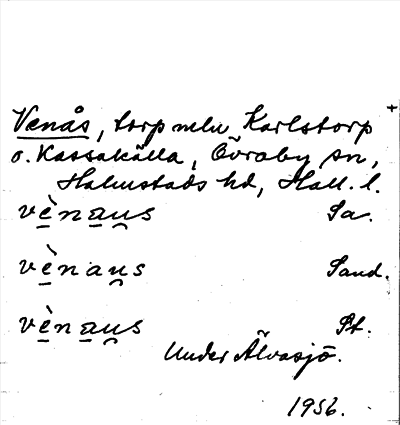 Venås, torp mln Karlstorp
o. Kassakälla, Övraby sn,
Halmstads hd, Hall. l.
vènaus Sa.
vènaus Sand.
vènaus St.
Under Älvasjö.
1956.